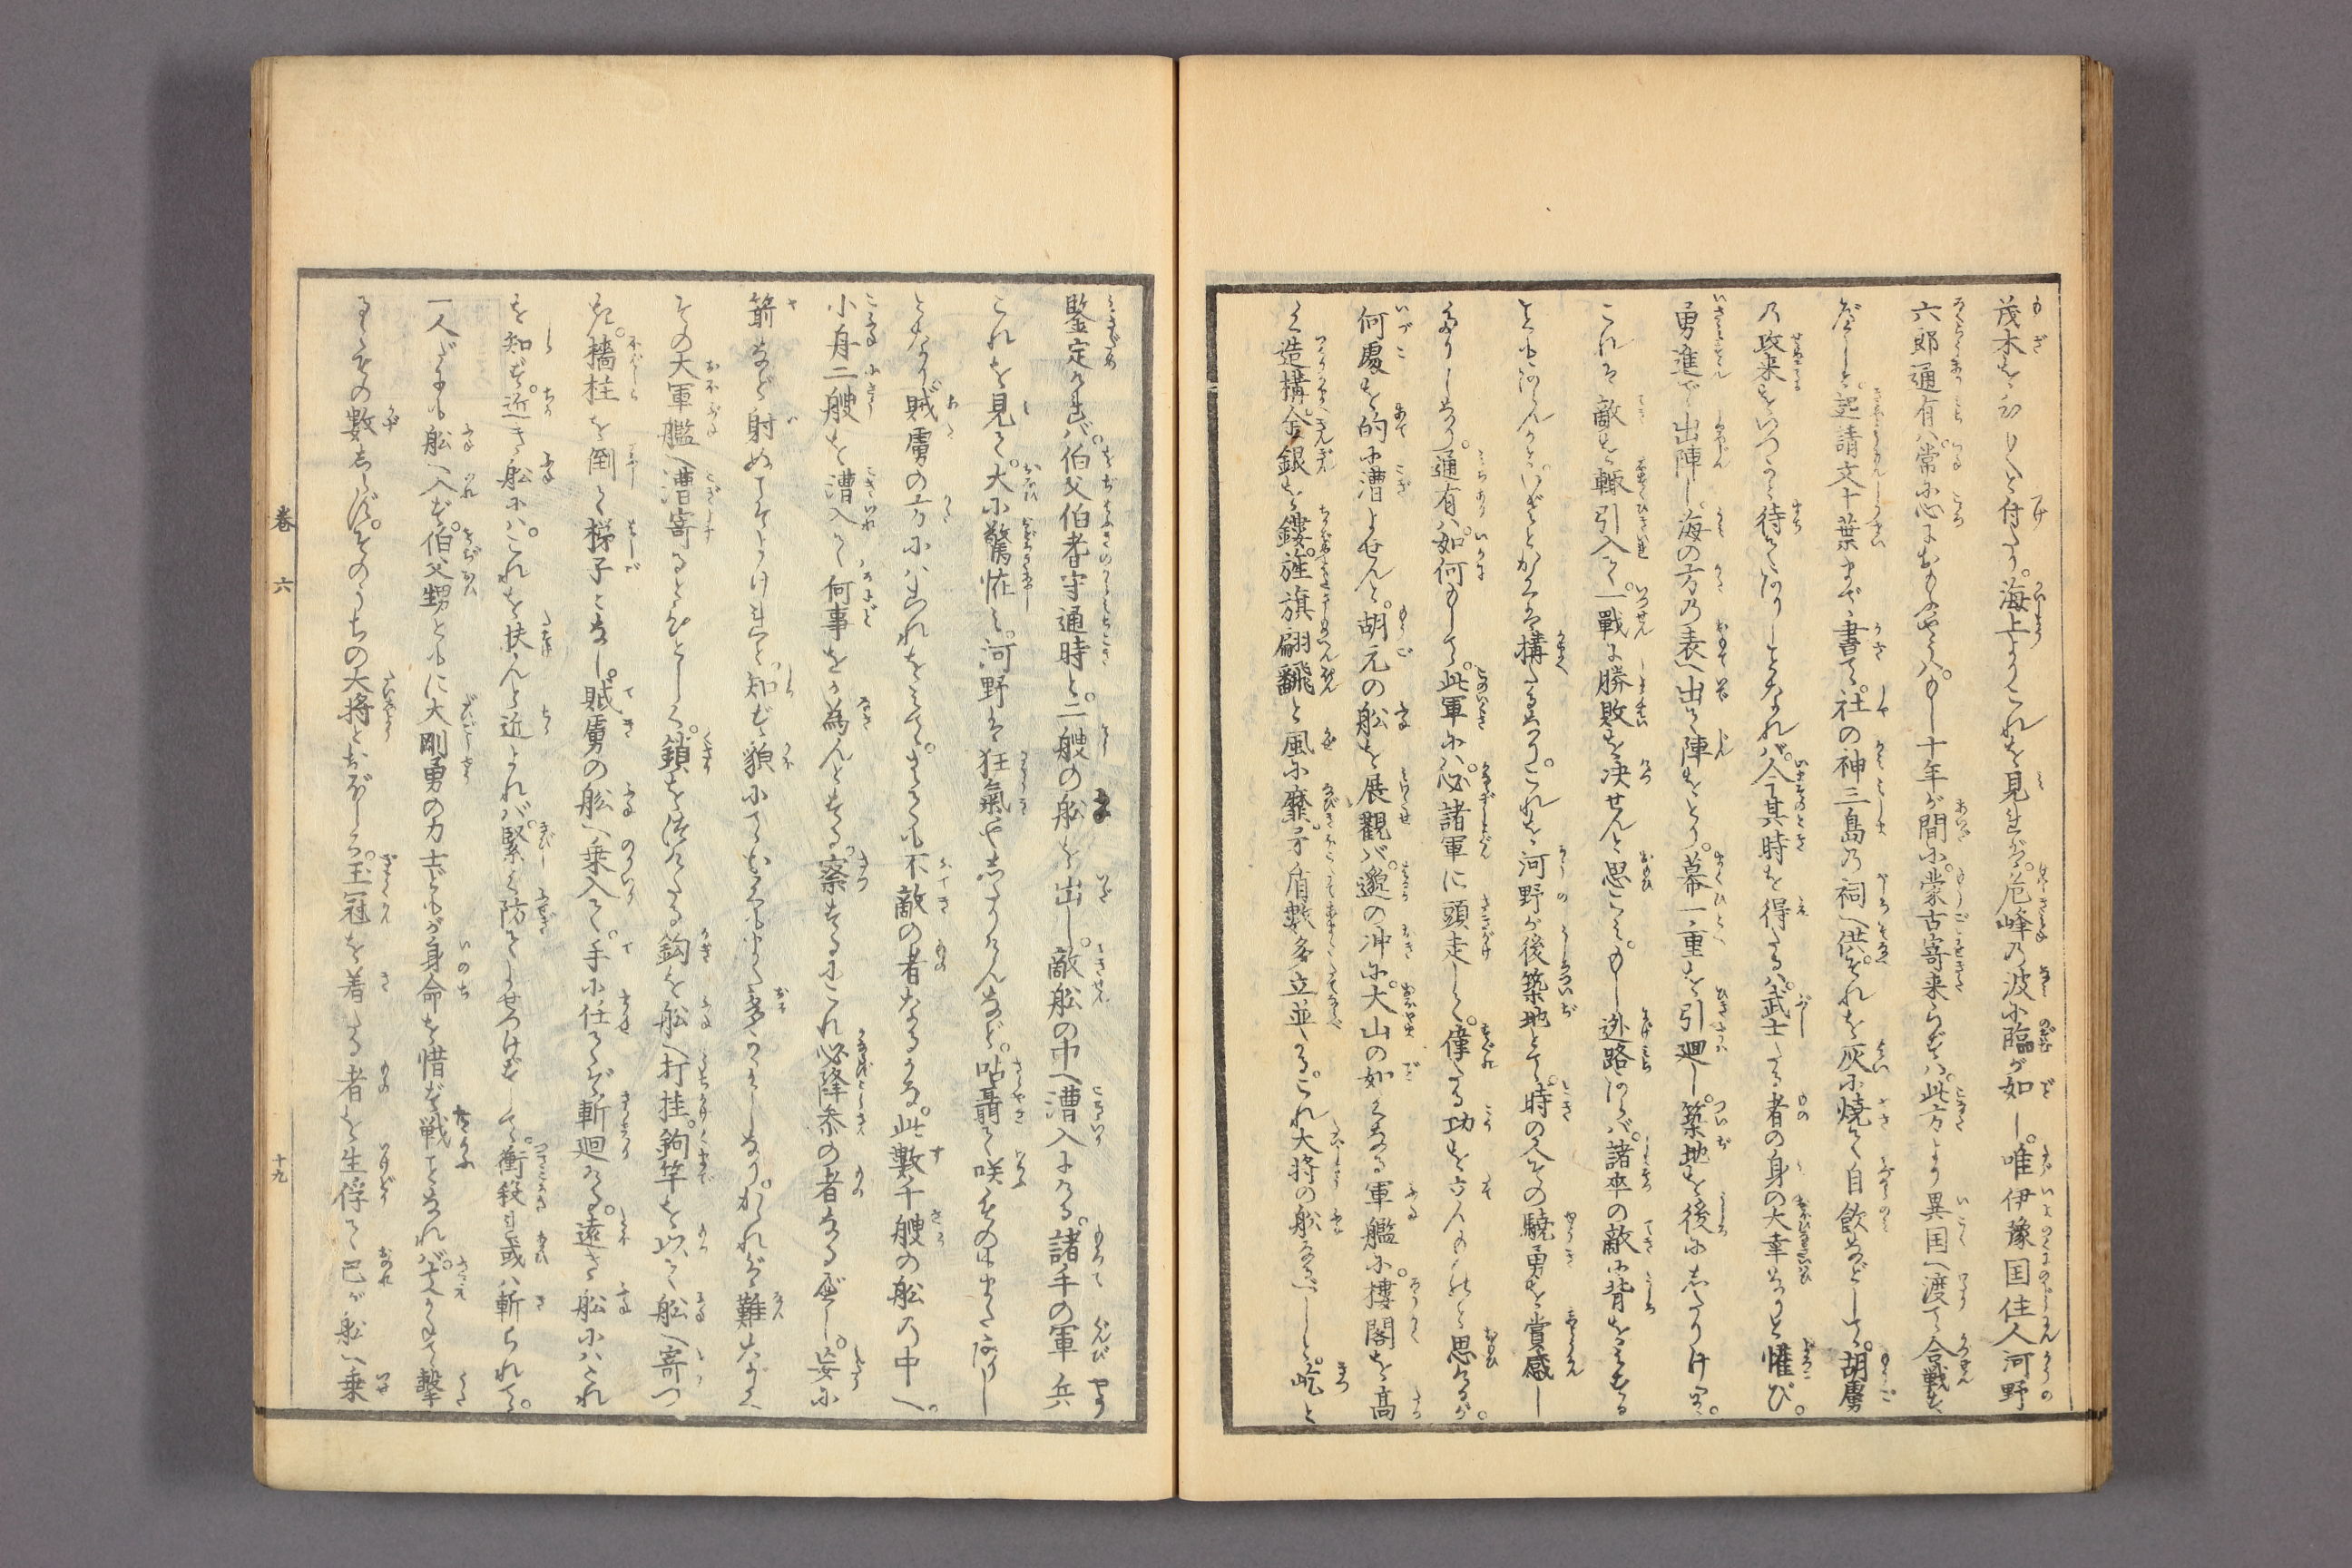 茂木をわりと付たり。海上よりこれを見れば。危峰乃波に臨が如し。唯伊豫国住人河野
六郎通有ハ。常に心におもふやうハ。もし十年が間に。蒙古寄来らずハ。此方より異国へ渡て合戦を
すべしと。起請文十葉まで書て。社の神三島乃祠へ供。それを灰に焼て自飲などして。胡虜
乃攻来をいつか待てありしことなれバ。今其時を得たるハ。武士たる者の身の大幸なりと懽び。
勇進で出陣し。海の方乃表へ出て陣をとり。幕一重を引廻し。築地を後にしたりけり。
これハ敵を輙引入て。一戦に勝敗を决せんと思こゝろ。もし迯路あらバ。諸卒の敵に背をみする
こともあらんかといひてかくハ構たるなり。これを河野が後築地とて。時の人その驍勇を賞感し
たりしなり。通有ハ。如何もして。此軍にハ。必諸軍に頭走して。偉たる功を立んものと思けるが。
何處を的に漕よせんと。胡元の船を展觀バ。邈の冲に。大山の如くなる軍艦に。樓閣を高
く造構金銀を鏤。旌旗翩飜と風に靡。矛盾數多立並たる。これ大将の船なるべしと。屹と
鑒定けれバ。伯父伯耆守通時と。二艘の船を出し。敵船の中へ漕入ける。諸手の軍兵
これを見て。大に驚怪み。河野ハ狂氣やしたりけんなど。呫聶て咲ものもまたありし
となり。賊虜の方にハこれをみて。さても不敵の者なるかな。此數千艘の船乃中へ。
小舟二艘を漕入て何事をか為んとする。察するにこれ必降参の者なるべし。妄に
箭など射ぬてそよけれと。知ず貌にてゐるものもまた多かりしなり。かゝれば難なく
その大軍艦へ漕寄るとひとしく。鎖をつけたる鈎を船へ打挂。鉤竿を以て船へ寄つ
き。檣柱を倒して梯子となし。賊虜の船へ乗入て。手に任てぞ斬廻ける。遠き船にハこれ
を知ず。近き船にハ。これを扶んと近よれバ。緊く防てよせつけずして。衝殺或ハ斬られて。
一人だにも船へ入ず。伯父甥ともに大剛勇の力士どもが身命を惜ず戦ことなれバ。支かねて撃
るゝその數をしらず。そのうちの大将とおぼしき。玉冠を着たる者を生俘て己が船へ乗
卷 六 十九